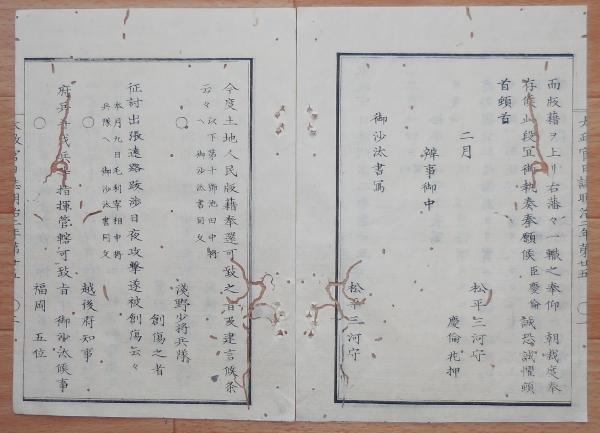 而版籍ヲ上リ右藩々一轍之奉仰 朝裁度奉
存候此段宜御執奏奉願候臣慶倫誠恐誠懼頓
首頓首
二月
松平三河守
慶倫花押
辨事御中
御沙汰書写
松平三河守
今度土地人民版籍奉還可致之旨及建言候条
云々 以下第十郷池田中将
ヘ 御沙汰書同文
〇
淺野少将兵隊
創傷之者
征討出張遠路跋渉日夜攻撃遂被創傷云々
本月九日毛利宰相中将
兵隊ヘ 御沙汰書同文
〇
越後府知事
府兵指揮管轄可致旨 御沙汰候事
福岡 五位
太政官日誌明治二年第廿五